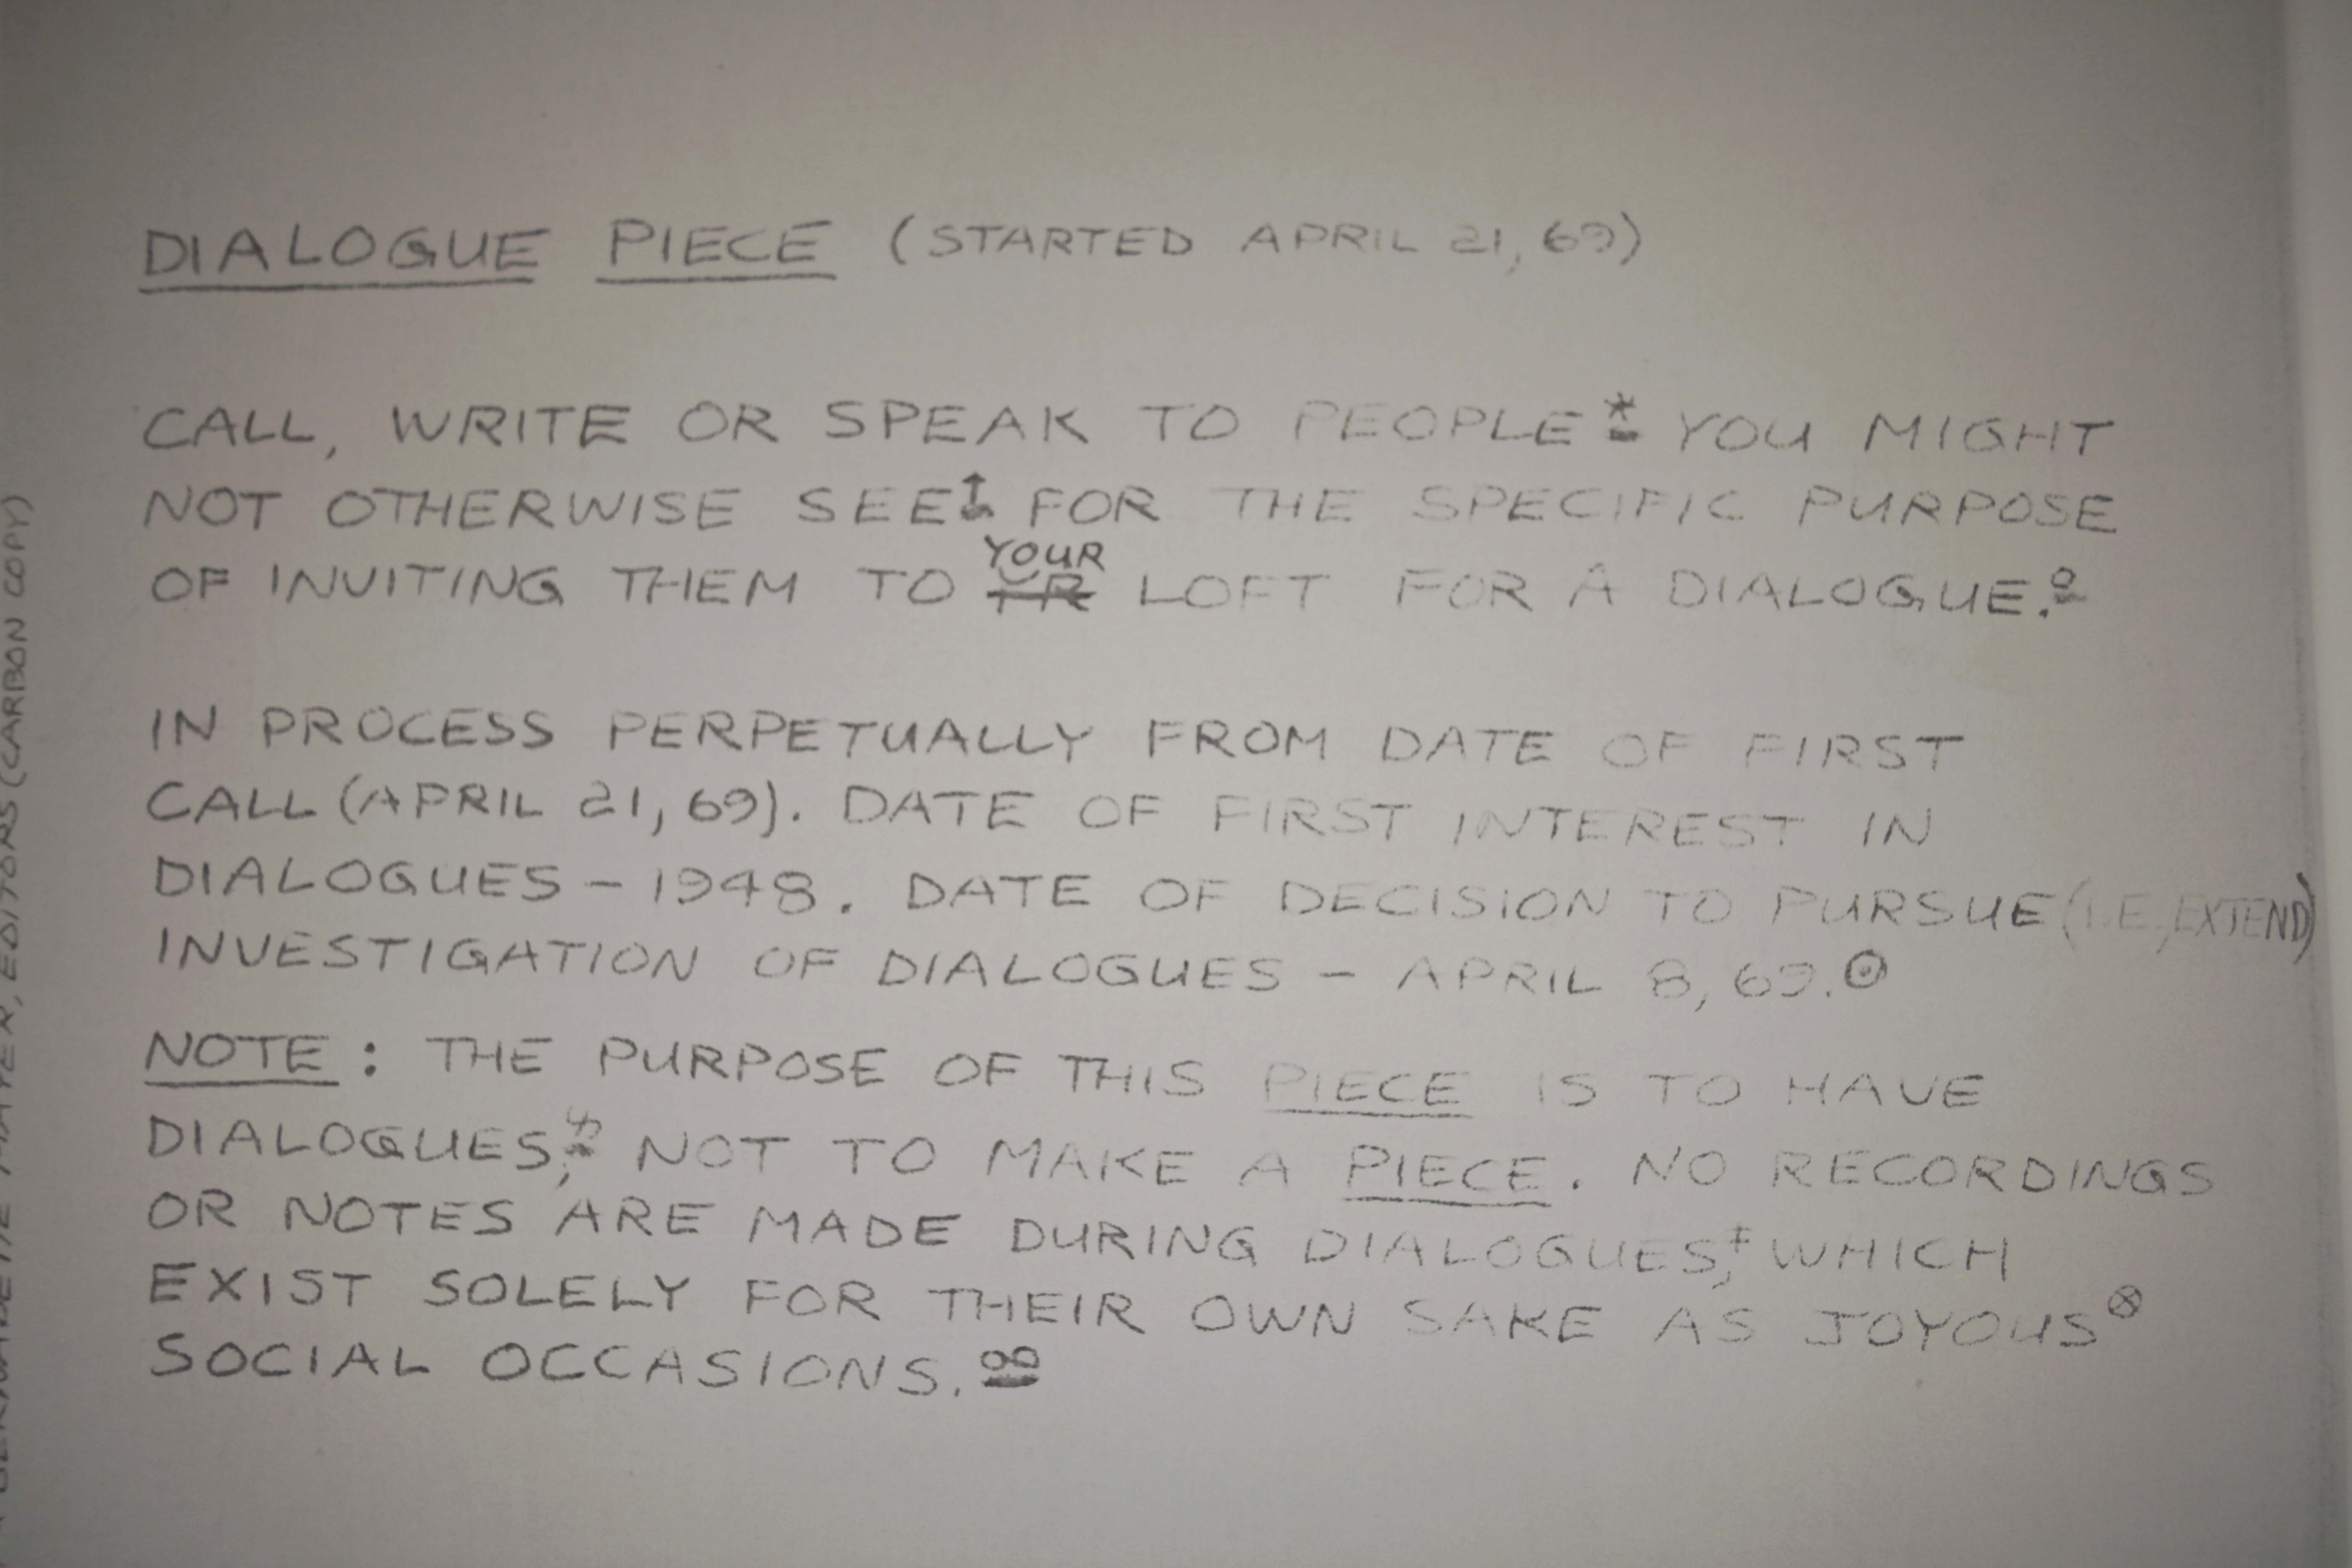 DIALOGUE PIECE (STARTED APRIL 21, 69)
CALL, WRITE OR SPEAK TO PEOPLE* YOU MIGHT
NOT OTHERWISE SEE† FOR THE SPECIFIC PURPOSE
YOUR
OF INVITING THEM TO LOFT FOR A DIALOGUE.º
IN PROCESS PERPETUALLY FROM DATE OF FIRST
CALL (APRIL 21, 69). DATE OF FIRST INTEREST IN
DIALOGUES – 1948. DATE OF DECISION TO PURSUE (I.E., EXTEND)
INVESTIGATION OF DIALOGUES – APRIL 8, 69.⊙
NOTE : THE PURPOSE OF THIS PIECE IS TO HAVE
DIALOGUES, NOT TO MAKE A PIECE. NO RECORDINGS
OR NOTES ARE MADE DURING DIALOGUES,‡ WHICH
EXIST SOLELY FOR THEIR OWN SAKE AS JOYOUS⊗
SOCIAL OCCASIONS.ºº
MAYER, EDITORS (CARBON COPY)